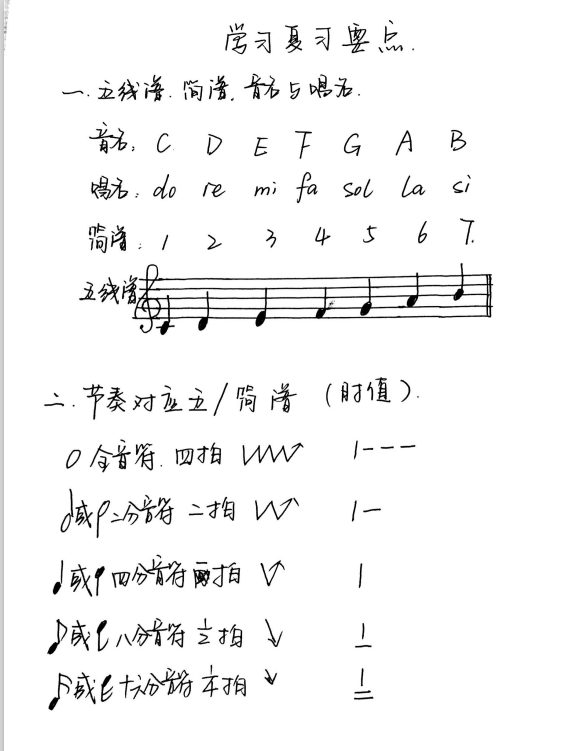 学习复习要点.
一.五线谱.简谱.音名与唱名.
音名: C D E F G A B
唱名: do re mi fa sol la si
简谱: 1 2 3 4 5 6 7.
五线谱
二.节奏对应五/简谱(时值).
全音符.四拍 1---
或 二分音符 二拍 1-
或 四分音符 拍 1
或 八分音符 1/2拍 1
或 十六分音符 拍 1